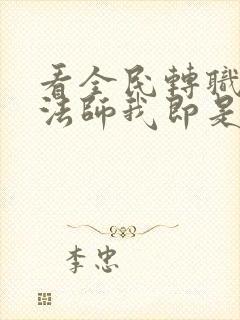 看全民轉職
法師我即是
李忠